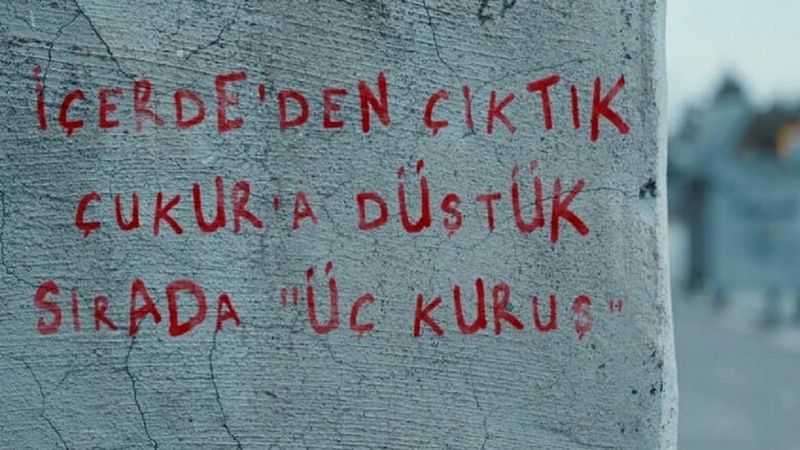 İÇERDE'DEN ÇIKTIK
ÇUKUR'A DÜŞTÜK
SIRADA "ÜÇ KURUŞ"